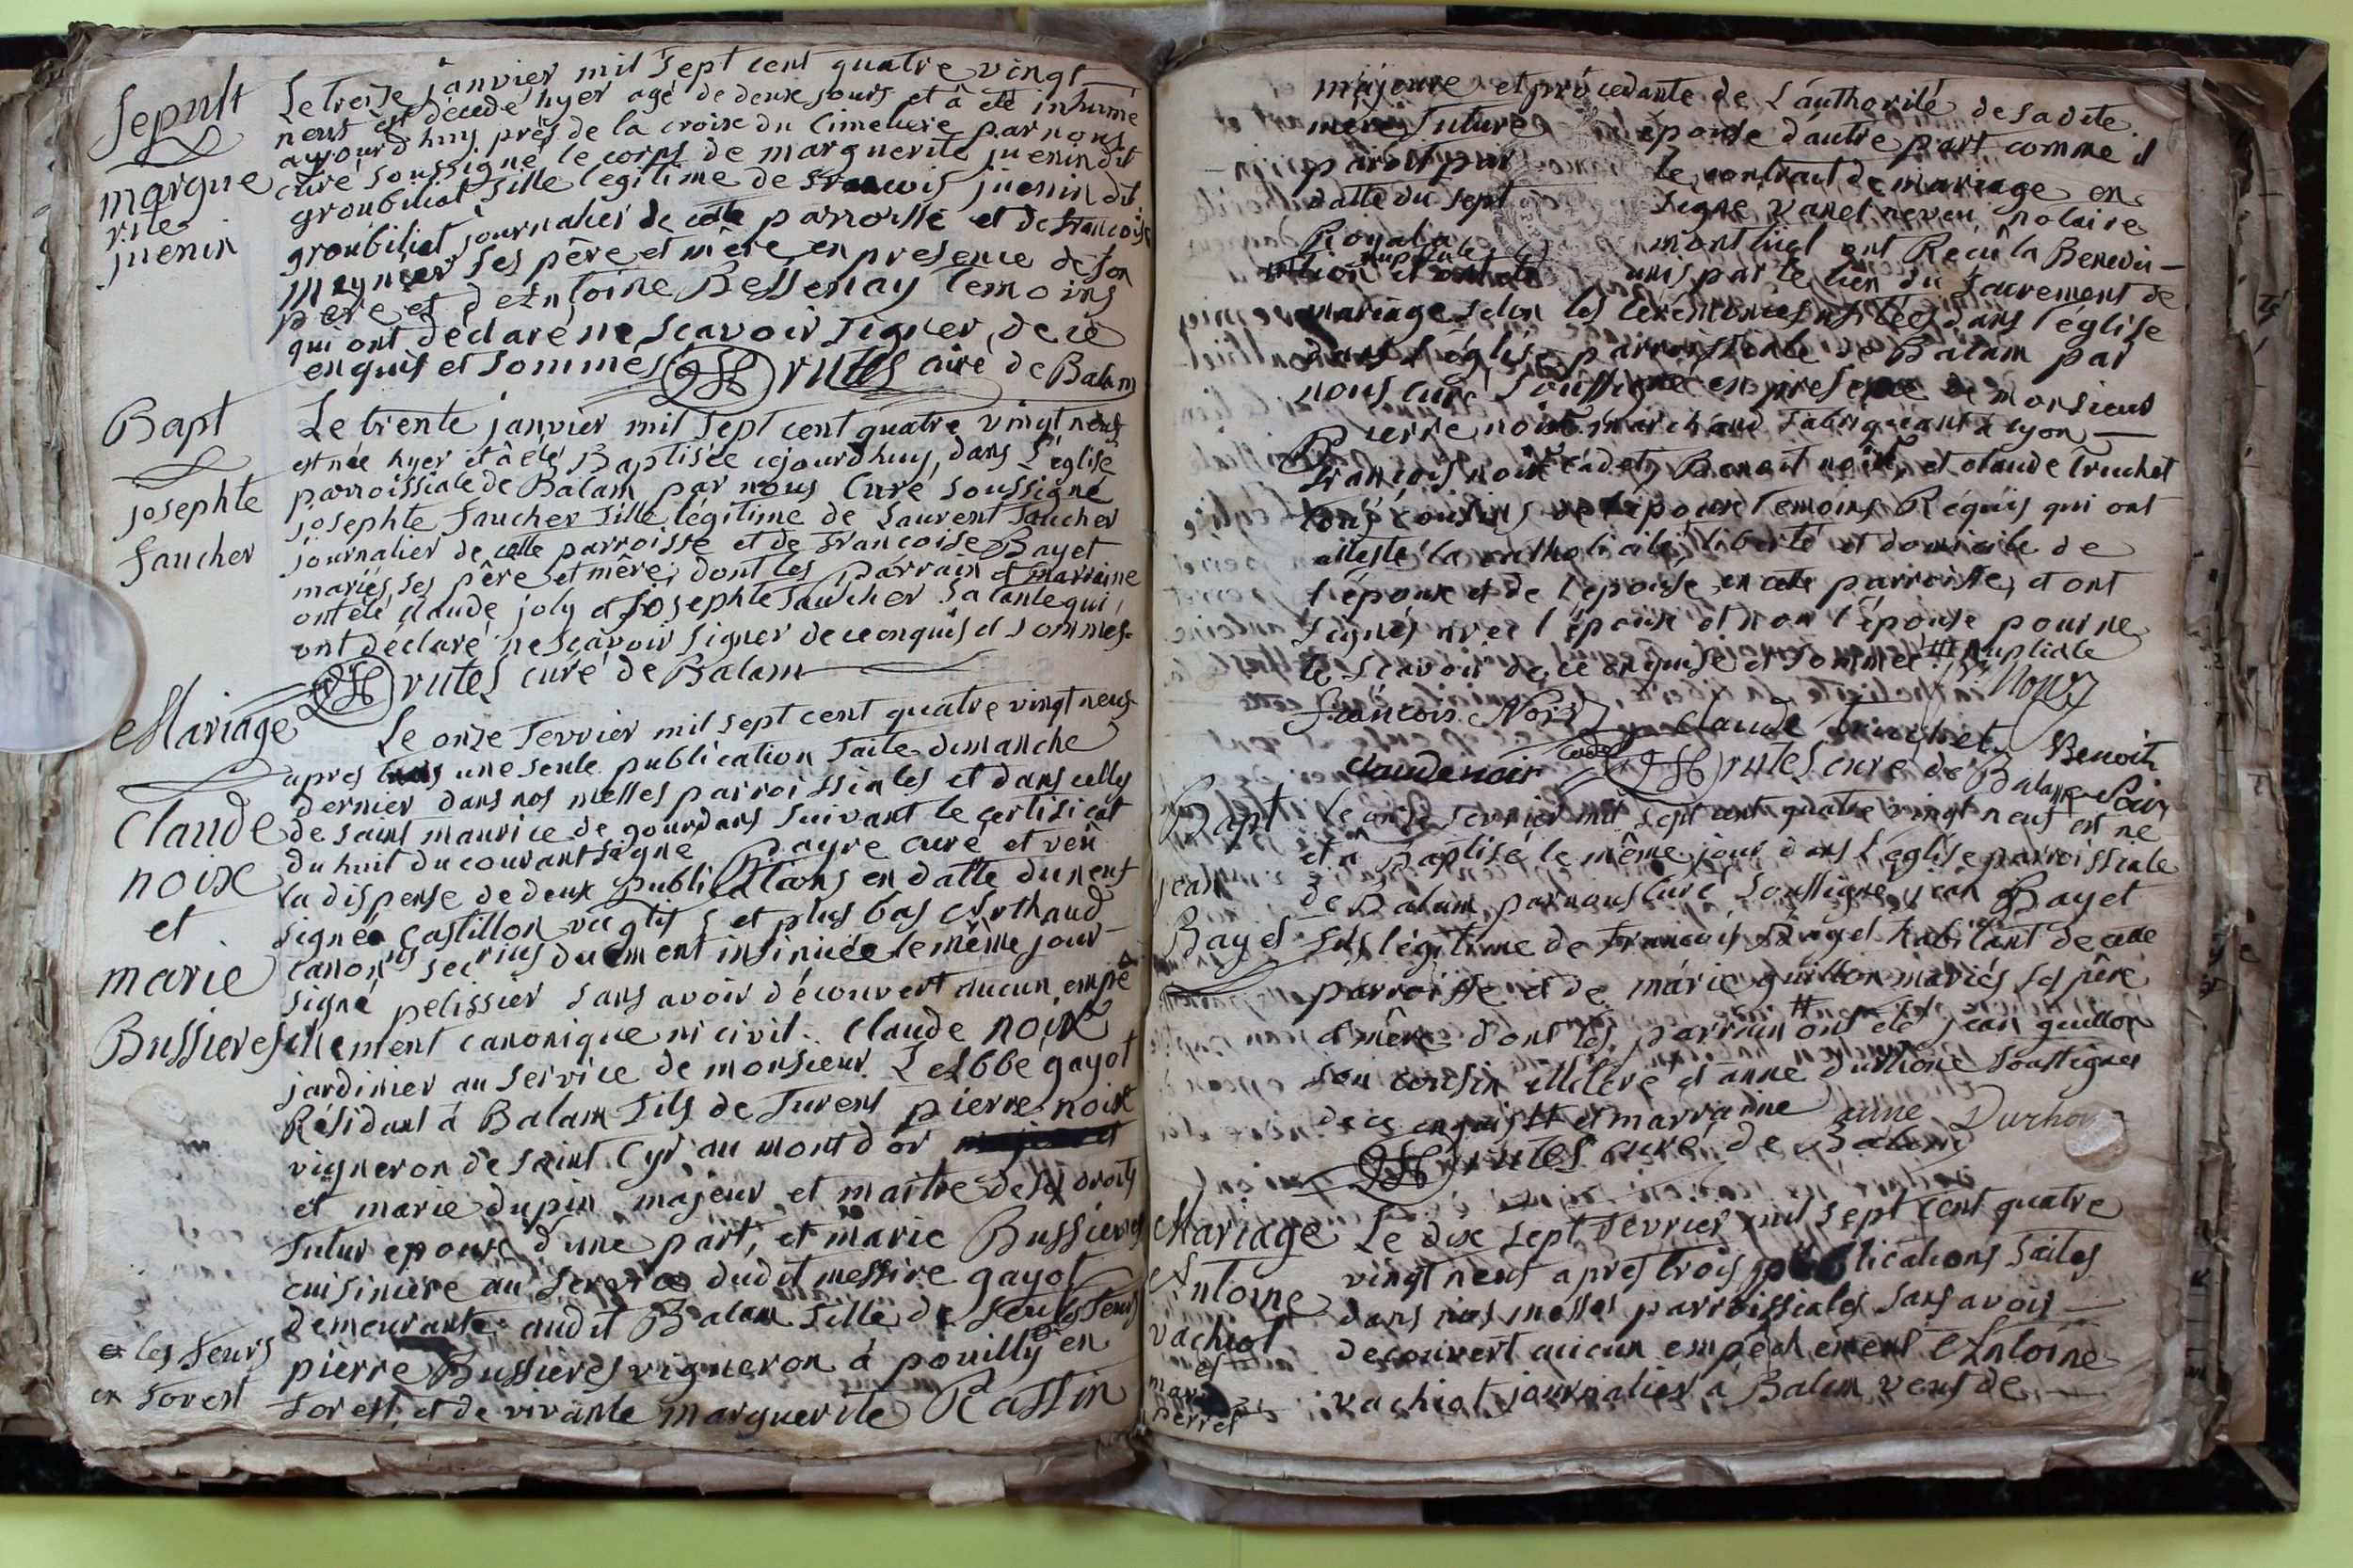 Sepult
margue
rite
juenin
Le treise janvier mil sept cent quatre vingt
neuf est décedé hyer agé de deux jours et à été inhumé
aujourd'huy près de la croix du Cimetiere par nous
curé soussigné le corps de marguerite juenin dit
groubiliat fille legitime de francois juenin dit
groubiliat journalier de cette parroisse et de francoise
meynier ses père et mère en presence de son
père et d'Antoine Bessenay temoins
qui ont déclaré ne scavoir signer, de ce
enquis et sommes rutes curé de Balam
Bapt
josephte
faucher
Le trente janvier mil sept cent quatre vingt neuf
est née hyer et à été Baptisée cejourd'huy, dans l'église
parroissiale de Balam par nous Curé soussigné
josephte faucher fille légitime de Laurent faucher
journalier de cette parroisse et de francoise Bayet
mariés, ses père et mère, dont les parrain et marraine
ont été Claude joly et josephte faucher sa tante qui
ont déclaré ne scavoir signer de ce enquis et sommes
rutes curé de Balam
Mariage
Claude
noix
et
marie
Bussieres
Le onze fevrier mil sept cent quatre vingt neuf
apres une seule publication faite dimanche
dernier dans nos messes parroissiales et dans celles
de saint maurice de gourdans suivant le certificat
du huit du courant signé payre curé et veu
la dispense de deux publications en datte du neuf
signée Castillon et plus bas
duement insinuée le même jour
signé pelissier sans avoir découvert aucun empê
chement canonique ni civil. Claude noix
jardinier au service de monsieur L'Abbé gayot
Résidant à Balam fils de furent pierre noix
vigneron de saint Cyr au mont d'or
et marie dupin majeur et maitre de ses droits
futur epoux d'une part, et marie Bussieres
cuisiniere au service dudit messire gayot
demeurante audit Balam fille de
pierre Bussières vigneron à pouilly en
forest, et de vivante marguerite Rassin
les feurs
en forest
majeure et procedante de l'authorité de sadite
mère future épouse d'autre part comme il
paroit par le contract de mariage en
datte du sept signé vanel neveu notaire
Royal a montluel ont Reçu la Benedic
tion nuptiale et ont été unis par le lien du sacrement de
mariage selon les cérémonies usitées dans l'église
dans l'église parroissiale de Balam par
nous curé soussigné en presence de monsieur
Pierre noix marchand fabriquant à lyon
francois noix cadet, Benoit noix, et claude truchet
tous cousins de l'époux temoins Réquis qui ont
attesté la catholicité, liberté et domicile de
l'époux et de l'épouse en cette parroisse, et ont
signés avec l'époux et non l'épouse pour ne
le scavoir de ce enquise et sommée nuptiale
françois Noix Claude truchet
claude noix cadet rutes curé de Balam Benoit
Noir
Bapt
jean
Bayet
Le onze fevrier mil sept cent quatre vingt neuf est né
et a Baptisé le même jour dans l'église parroissiale
de Balam par nous curé soussigné jean Bayet
fils légitime de francois Bayet habitant de cette
parroisse et de marie guillon mariés ses père
et mère dont les parrain ont été jean guillon
son cousin illiteré et anne durhone soussignés
de ce enquis et marraine anne Durho
rutes curé de Balam
Mariage
Antoine
vachiot
et
perret
Le dix sept fevrier mil sept cent quatre
vingt neuf apres trois publications faites
dans nos messes parroissiales sans avoir
decouvert aucun empêchement Antoine
vachiot journalier à Balam veuf de